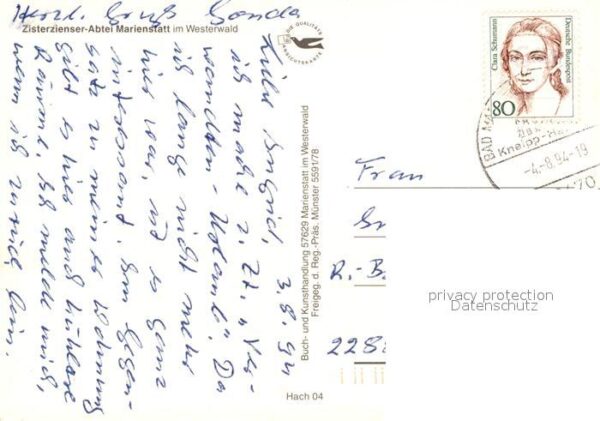 Herzl. Gruß Gonda
Zisterzienser-Abtei Marienstatt im Westerwald
DIE QUALITÄTS
ANSICHTSKARTE
3.8.94
Liebe Ingrid,
ich mache z. Zt. "Ver-
wandten-Urlaub". Da
ich lange nicht mehr
hier war, ist es ganz
interessant. Im Gegen-
satz zu meiner Wohnung
gibt es hier auch kühlere
Räume. Ich melde mich,
wenn ich zurück bin.
Buch- und Kunsthandlung 57629 Marienstatt im Westerwald
Freigeg. d. Reg.-Präs. Münster 5591/78
Hach 04
Clara Schumann
Deutsche Bundespost
80
BAD
Kneipp-
-4.8.94-19
Frau
R.-B.
privacy protection
Datenschutz